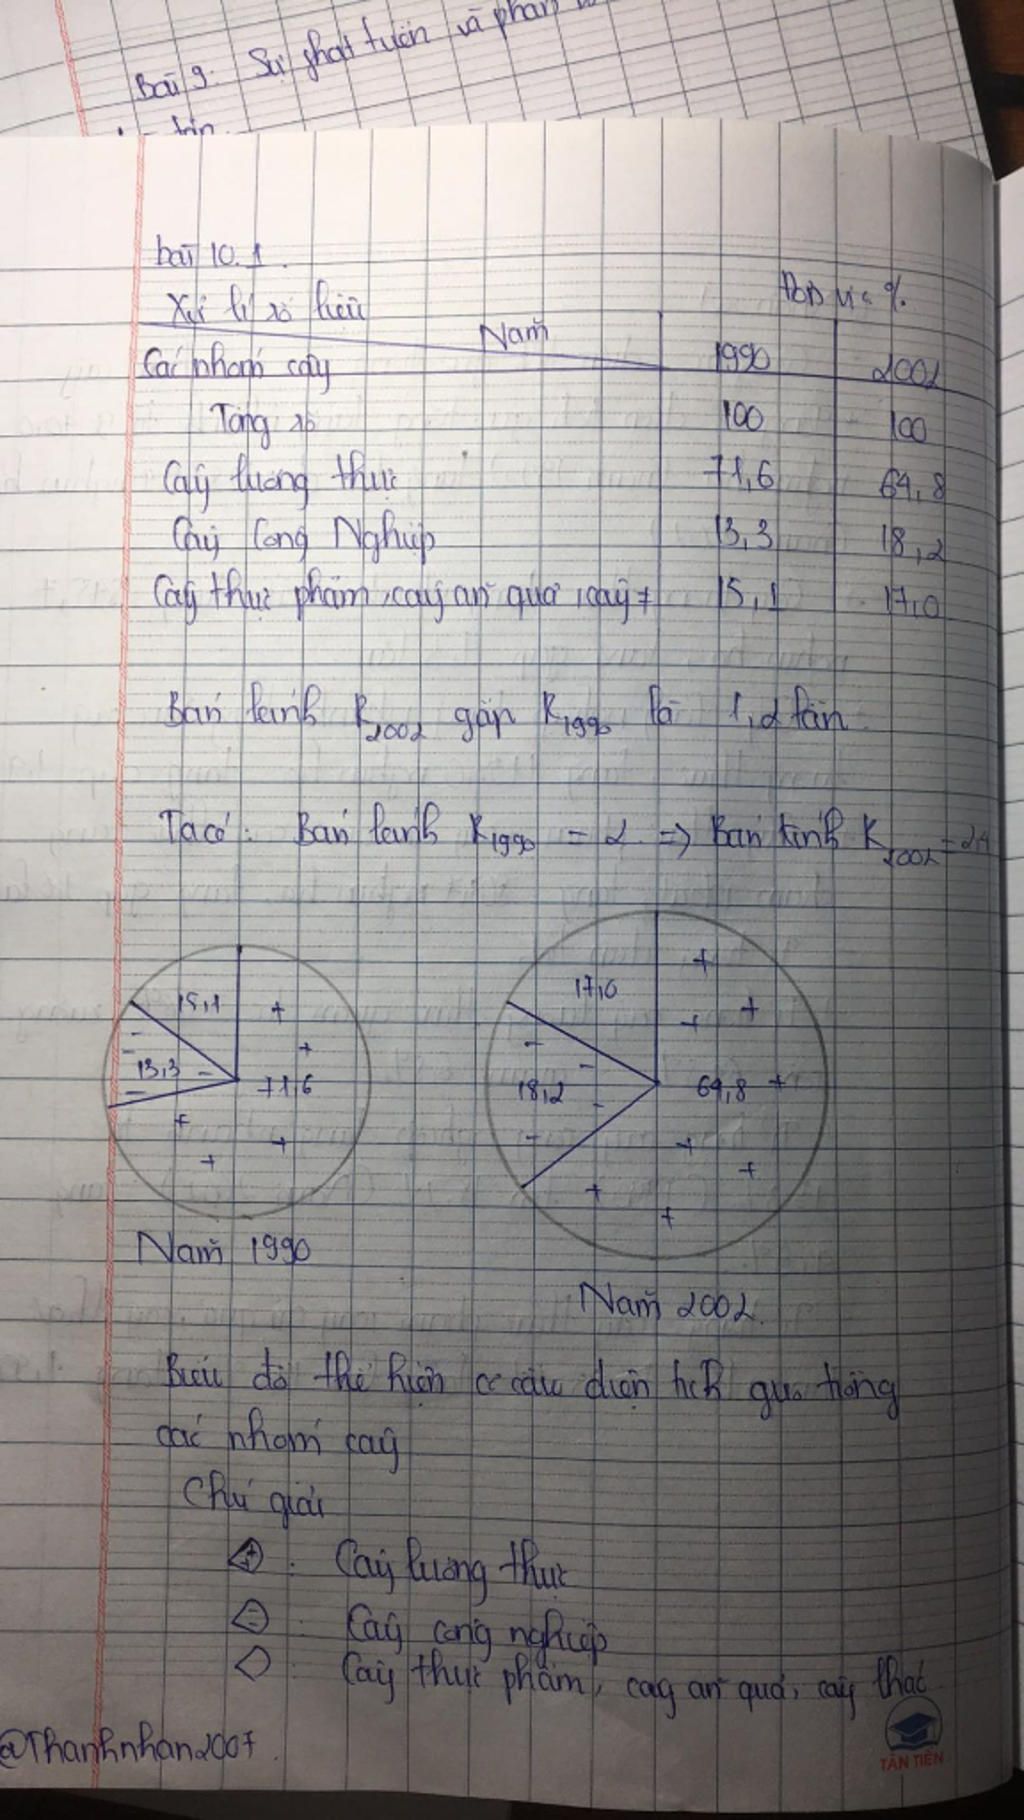 Bài 9: Sự phát triển và phân
bài 10.1
Xử lí số liệu
Đơn vị: %
Năm
Các nhóm cây 1990 2002
Tổng số 100 100
Cây lương thực 71,6 64,8
Cây Công Nghiệp 13,3 18,2
Cây thực phẩm, cây ăn quả, cây ≠ 15,1 17,0
Bán kính R2002 gấp R1990 là 1,2 lần
Ta có: Bán kính R1990 = 2 => Bán kính R2002 = 2,4
15,1
13,3
71,6
17,0
18,2
64,8
Năm 1990
Năm 2002
Biểu đồ thể hiện cơ cấu diện tích gieo trồng
các nhóm cây
Chú giải
+ : Cây lương thực
- : Cây công nghiệp
: Cây thực phẩm, cây ăn quả, cây khác
@Thanhnhan2007
TÂN TIẾN